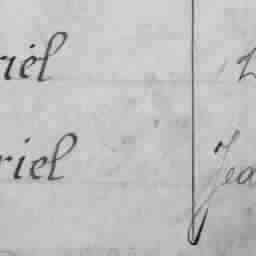 riel
riel Jea